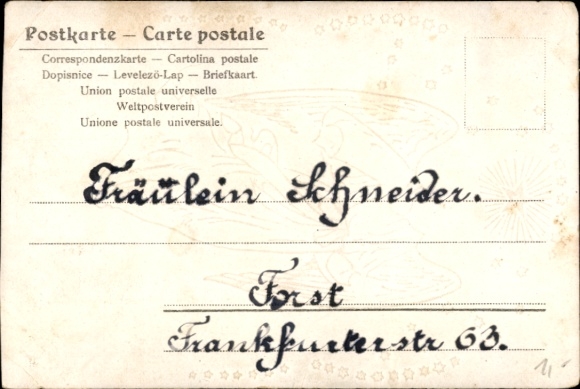 Postkarte — Carte postale
Correspondenzkarte — Cartolina postale
Dopisnice — Levelező-Lap — Briefkaart.
Union postale universelle
Weltpostverein
Unione postale universale.
Fräülein Schneider.
Forst
Frankfurterstr 63.